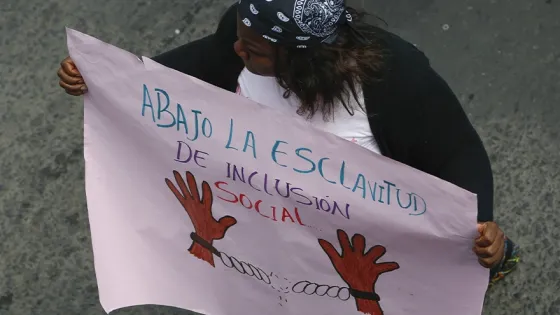 ABAJO LA ESCLAVITUD
DE INCLUSIÓN
SOCIAL